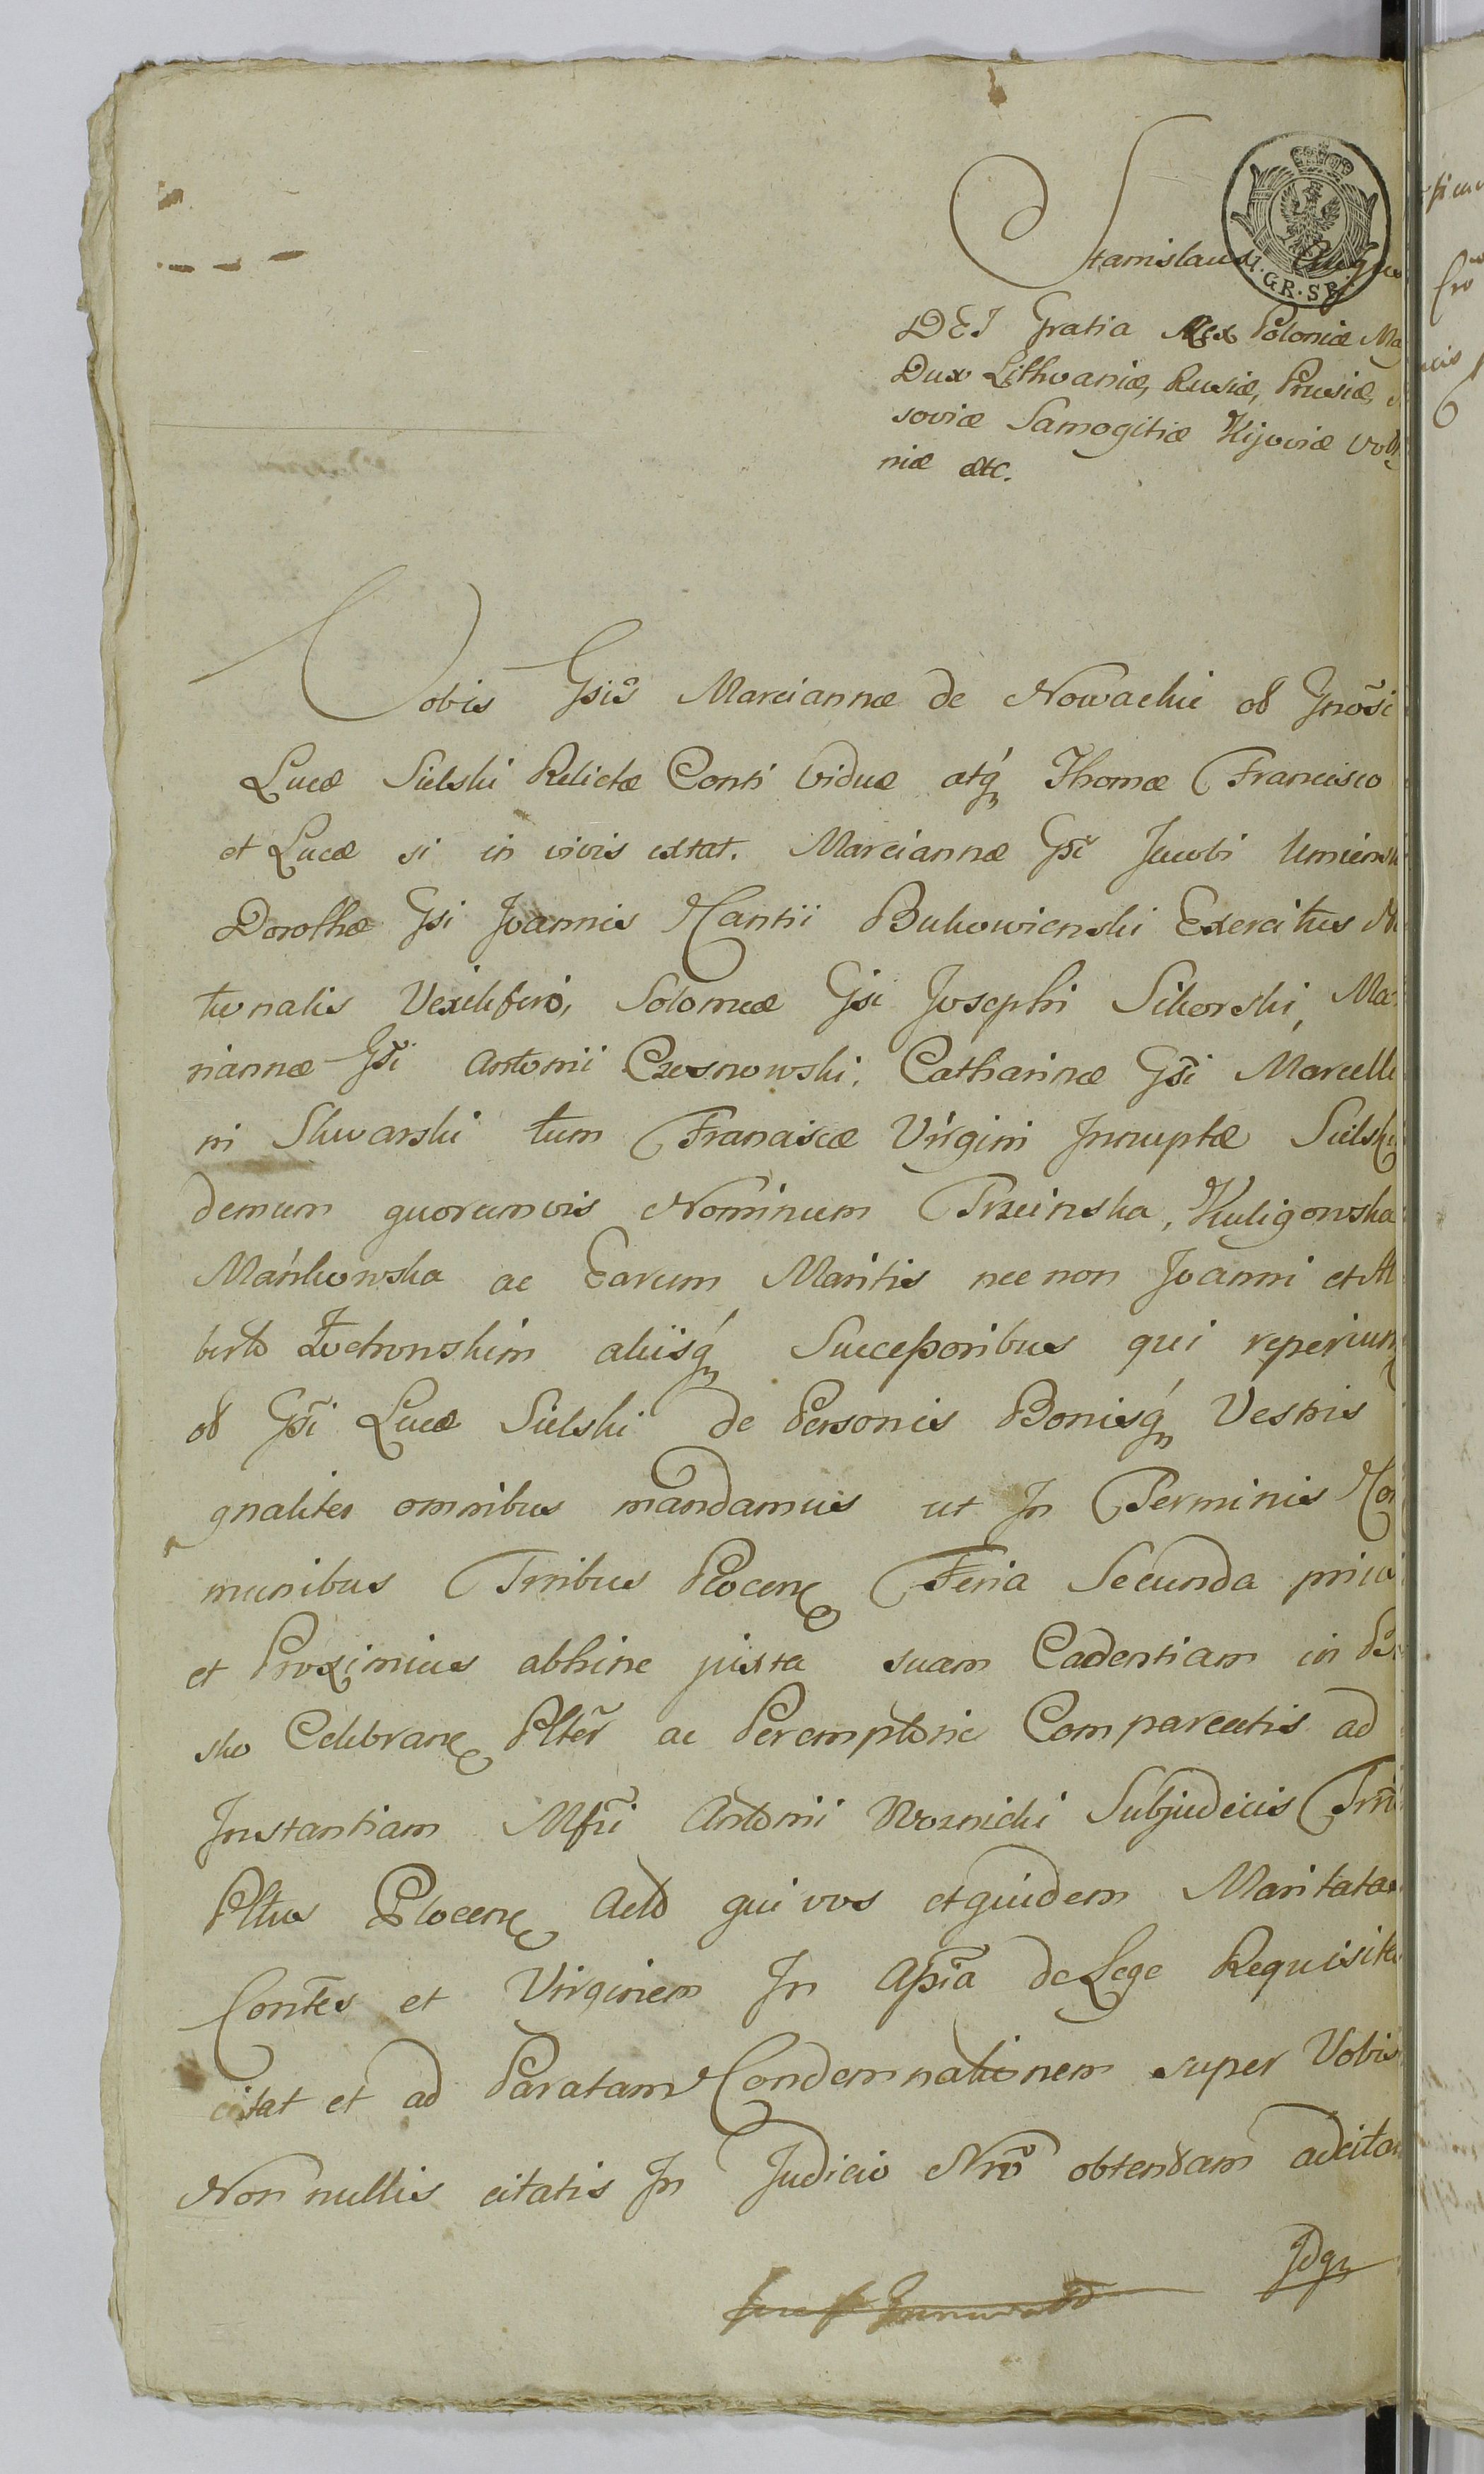 Stanislaus Augus
DEI Gratia Rex Poloniæ Ma
Dux Lithvaniæ, Rusiæ, Prusiæ,
soviæ Samogitiæ Kijoviæ Voly
niæ etc.
1. GR. SR.
Vobis Gsis Marciannæ de Nowackie olĩ Gnosi
Lucæ Sielski Relictæ Conti Viduæ atq́ Thomæ Francisco
et Lucæ si in vivis extat. Marciannæ Gsi Jacobi Umiensk
Dorothæ Gsi Joannis Kantii Bukowienski Exercitus Na
tionalis Vexilifero, Solomeæ Gsi Josephi Sikorski, Ma
riannæ Gsi Antonii Czosnowski, Catharinæ Gsi Marcelli
ni Skwarski tum Franciscæ Virgini Innuptæ Sielski
demum quorumvis Nominum Trzcinska, Kuligowska
Mańkowska ac Earum Maritis nec non Joanni et Al
berto Żochowskim aliisq́ Successoribus qui reperiun
olĩ Gsi Lucæ Sielski de Personis Bonisq́ Vestris
gnaliter omnibus mandamus ut In Terminis Com
munibus Trribus Plocen Feria Secunda prius
et Proximius abhinc juxta suam Cadentiam in
sko Celebran Plter ac Peremptorie Compareatis ad
Instantiam Mfri Antonii Woznicki Subjudicis Trri
Pltus Plocen Acto qui vos et quidem Maritatas
Contes et Virginem In Aps̃ia de Lege Requisita
citat et ad Paratam Condemnationem super Vobis
Non nullis citatis In Judicio Nro obtendam adcita
Idq